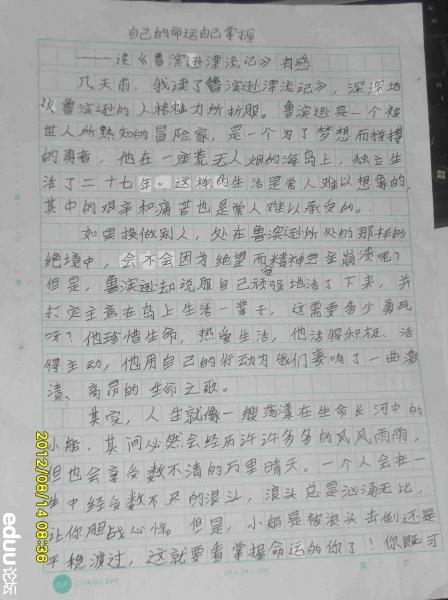 自己的命运自己掌握
——读《鲁滨逊漂流记》有感
几天前,我读了《鲁滨逊漂流记》,深深地
被鲁滨逊的人格魅力所折服。鲁滨逊是一个被
世人所熟知的冒险家,是一个为了梦想而拼搏
的勇者,他在一座荒无人烟的海岛上,独立生
活了二十七年。这样的生活是常人难以想象的,
其中的艰辛和痛苦也是常人难以承受的。
如果换做别人,处在鲁滨逊所处的那样的
绝境中,会不会因为绝望而精神完全崩溃呢?
但是,鲁滨逊却说服自己顽强地活了下来,并
打定主意在岛上生活一辈子,这需要多少勇气
呀?他珍惜生命,热爱生活,他活得积极、活
得主动,他用自己的行动为我们奏响了一曲激
清、高昂的生命之歌。
其实,人生就像一艘荡漾在生命长河中的
小船,其间必然会经历许许多多的风风雨雨,
但也会享受数不清的万里晴天。一个人会在一
生中经受数不尽的浪头,浪头总是汹涌无比,
让你胆战心惊。但是,小船是被浪头击倒还是
平稳渡过,这就要看掌握命运的你了!你既可
CHANG ZHI
2012/08/14 08:36
eduu论坛